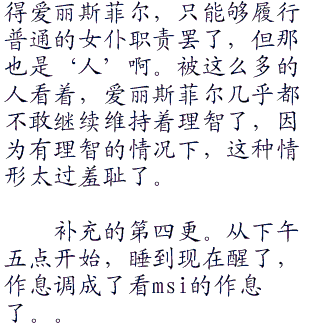 得爱丽斯菲尔，只能够履行
普通的女仆职责罢了，但那
也是‘人’啊。被这么多的
人看着，爱丽斯菲尔几乎都
不敢继续维持着理智了，因
为有理智的情况下，这种情
形太过羞耻了。
　　补充的第四更。从下午
五点开始，睡到现在醒了，
作息调成了看msi的作息
了。。